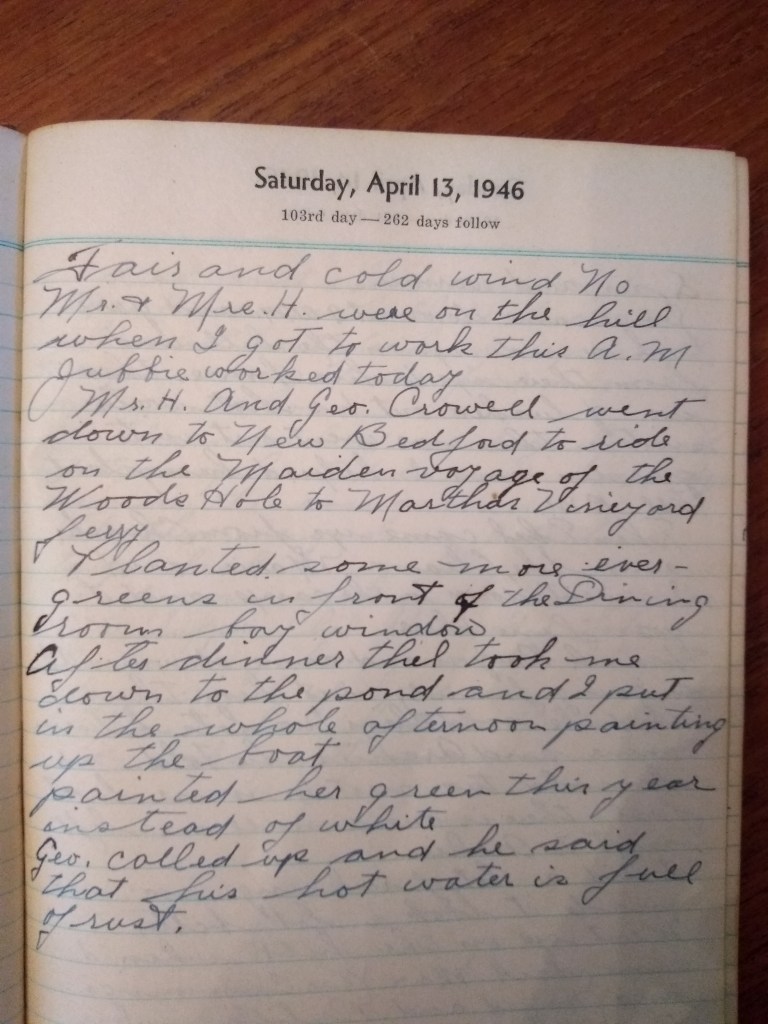 Saturday, April 13, 1946
103rd day — 262 days follow
Fair and cold wind No
Mr. & Mrs. H. were on the hill
when I got to work this A.M
Jubbie worked today
Mr. H. And Geo. Crowell went
down to New Bedford to ride
on the Maiden voyage of the
Woods Hole to Marthas Vineyard
ferry
Planted some more ever-
greens in front of the Dining
room bay window
After dinner thel took me
down to the pond and I put
in the whole afternoon painting
up the boat
painted her green this year
instead of white
Geo. called up and he said
that his hot water is full
of rust.